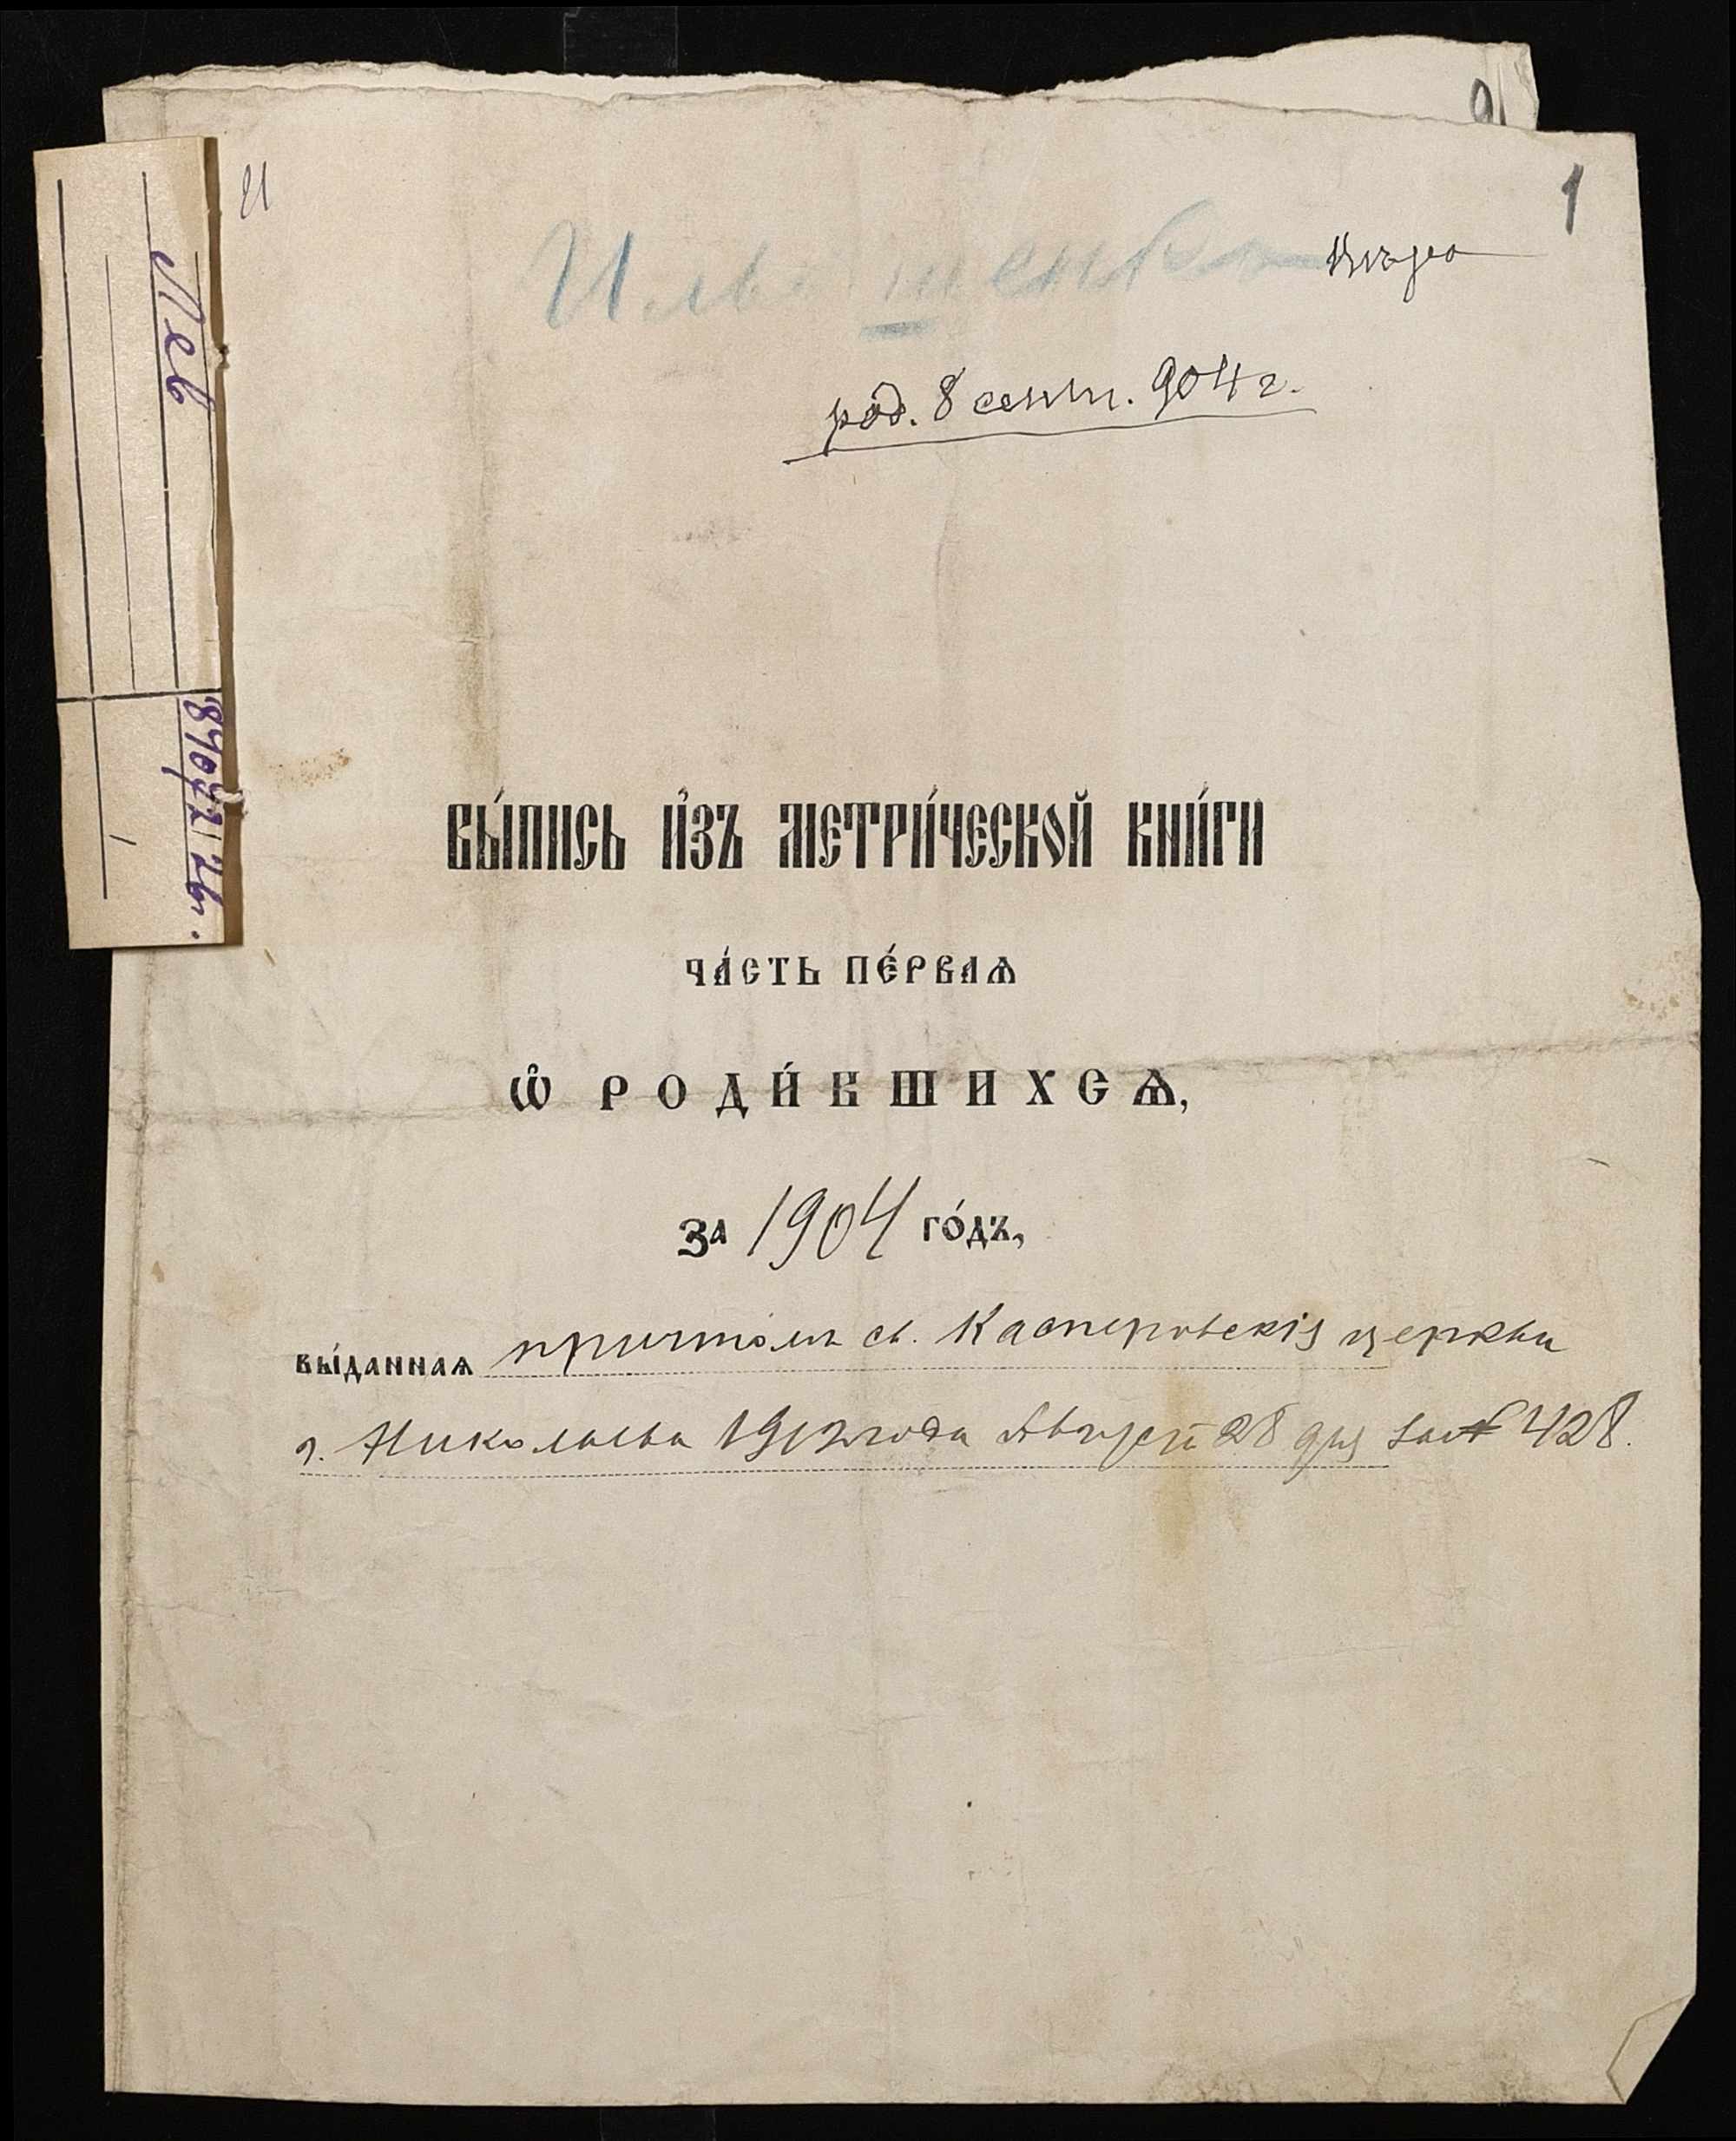 И
1
род. 8 сент. 904 г.
Лев
ВЫ́ПИСЬ И҆ЗЪ МЕТРИ́ЧЕСКОЙ КНИ́ГИ
ЧА́СТЬ ПЕ́РВАѦ
Ѡ҆ РОДИ́ВШИХСѦ,
За 1904 го́дъ,
вы́даннаѧ причтомъ св. Касперовскія церкви
г. Николаева 1912 года Августа 28 дня за № 428.